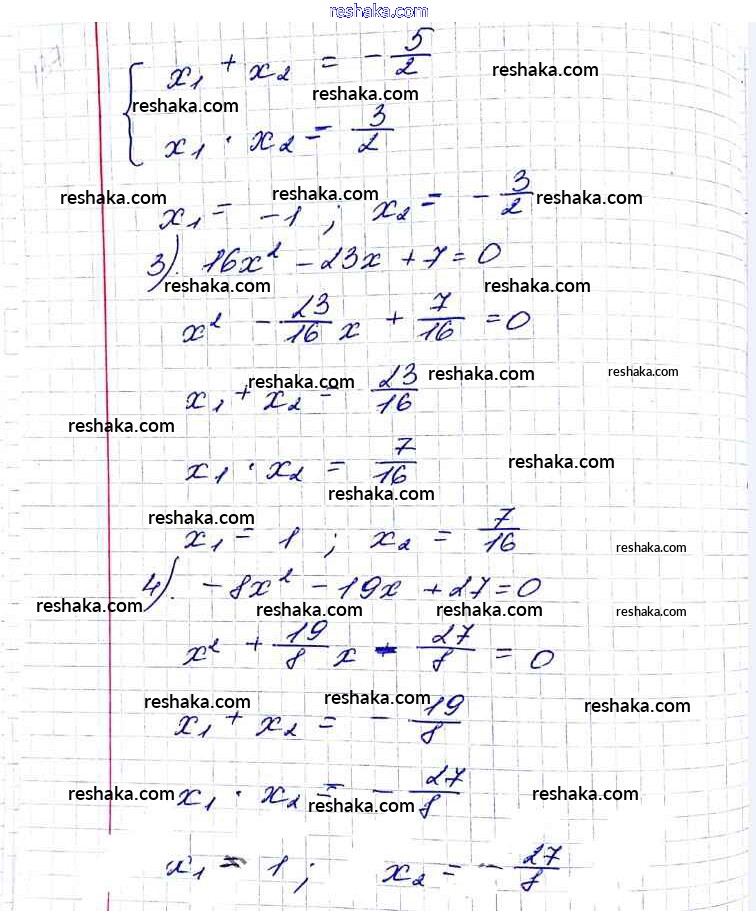 reshaka.com
x₁ + x₂ = - 5/2
reshaka.com
reshaka.com
reshaka.com
x₁ · x₂ = 3/2
reshaka.com
reshaka.com
reshaka.com
x₁ = -1 ; x₂ = - 3/2
3). 16x² - 23x + 7 = 0
reshaka.com
reshaka.com
x² - 23/16 x + 7/16 = 0
reshaka.com
reshaka.com
reshaka.com
x₁ + x₂ = 23/16
reshaka.com
x₁ · x₂ = 7/16
reshaka.com
reshaka.com
reshaka.com
x₁ = 1 ; x₂ = 7/16
reshaka.com
4). -8x² - 19x + 27 = 0
reshaka.com
reshaka.com
reshaka.com
reshaka.com
x² + 19/8 x - 27/8 = 0
reshaka.com
reshaka.com
reshaka.com
x₁ + x₂ = - 19/8
reshaka.com
reshaka.com
reshaka.com
x₁ · x₂ = - 27/8
x₁ = 1 ; x₂ = - 27/8